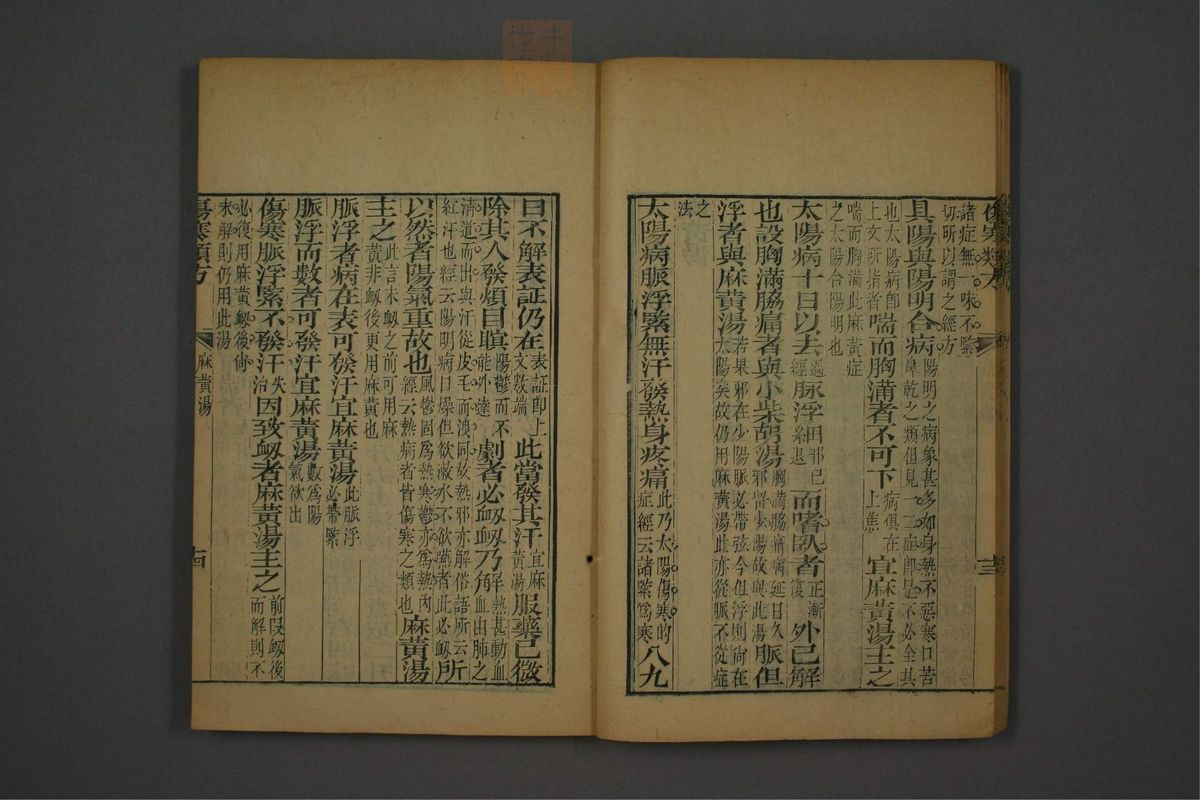 傷寒類方 十三
諸症無一味不緊
切所以謂之經方
具陽與陽明合病 陽明之病象甚多如身熱不惡寒口苦
鼻乾之類但見一二症卽是不必全具
也太陽病卽
上文所指者 喘而胸滿者不可下 病俱在
上焦 宜麻黃湯主之
喘而胸滿此麻黃症
之太陽合陽明也
太陽病十日以去 過
經 脉浮細 邪已
退 而嗜臥者 正漸
復 外已解
也設胸滿脇痛者與小柴胡湯 胸滿脇痛病延日久
邪留少陽故與此湯 脈但
浮者與麻黃湯 若果邪在少陽脈必帶弦今但浮則尚在
太陽矣故仍用麻黃湯此亦從脈不從症
之
法
太陽病脈浮緊無汗發熱身疼痛 此乃太陽傷寒的
症經云諸緊爲寒 八九
日不解表証仍在 表証卽上
文數端 此當發其汗 宜麻
黃湯 服藥已微
除其人發煩目瞑 陽鬱而不
能外達 劇者必衄衄乃解 熱甚動血
血由肺之
清道而出與汗從皮毛而洩同故熱邪亦解俗語所云
紅汗也經云陽明病口燥但欲漱水不欲嚥者此必衄 所
以然者陽氣重故也 風鬱固爲熱寒鬱亦爲熱內
經云熱病者皆傷寒之類也 麻黃湯
主之 此言未衄之前可用麻
黃非衄後更用麻黃也
脈浮者病在表可發汗宜麻黃湯 此脈浮
必帶緊
脈浮而數者可發汗宜麻黃湯 數爲陽
氣欲出
傷寒脈浮緊不發汗 失
治 因致衄者麻黃湯主之 前段衄後
而解則不
必復用麻黃衄後尚
未解則仍用此湯
傷寒類方 麻黃湯 十四